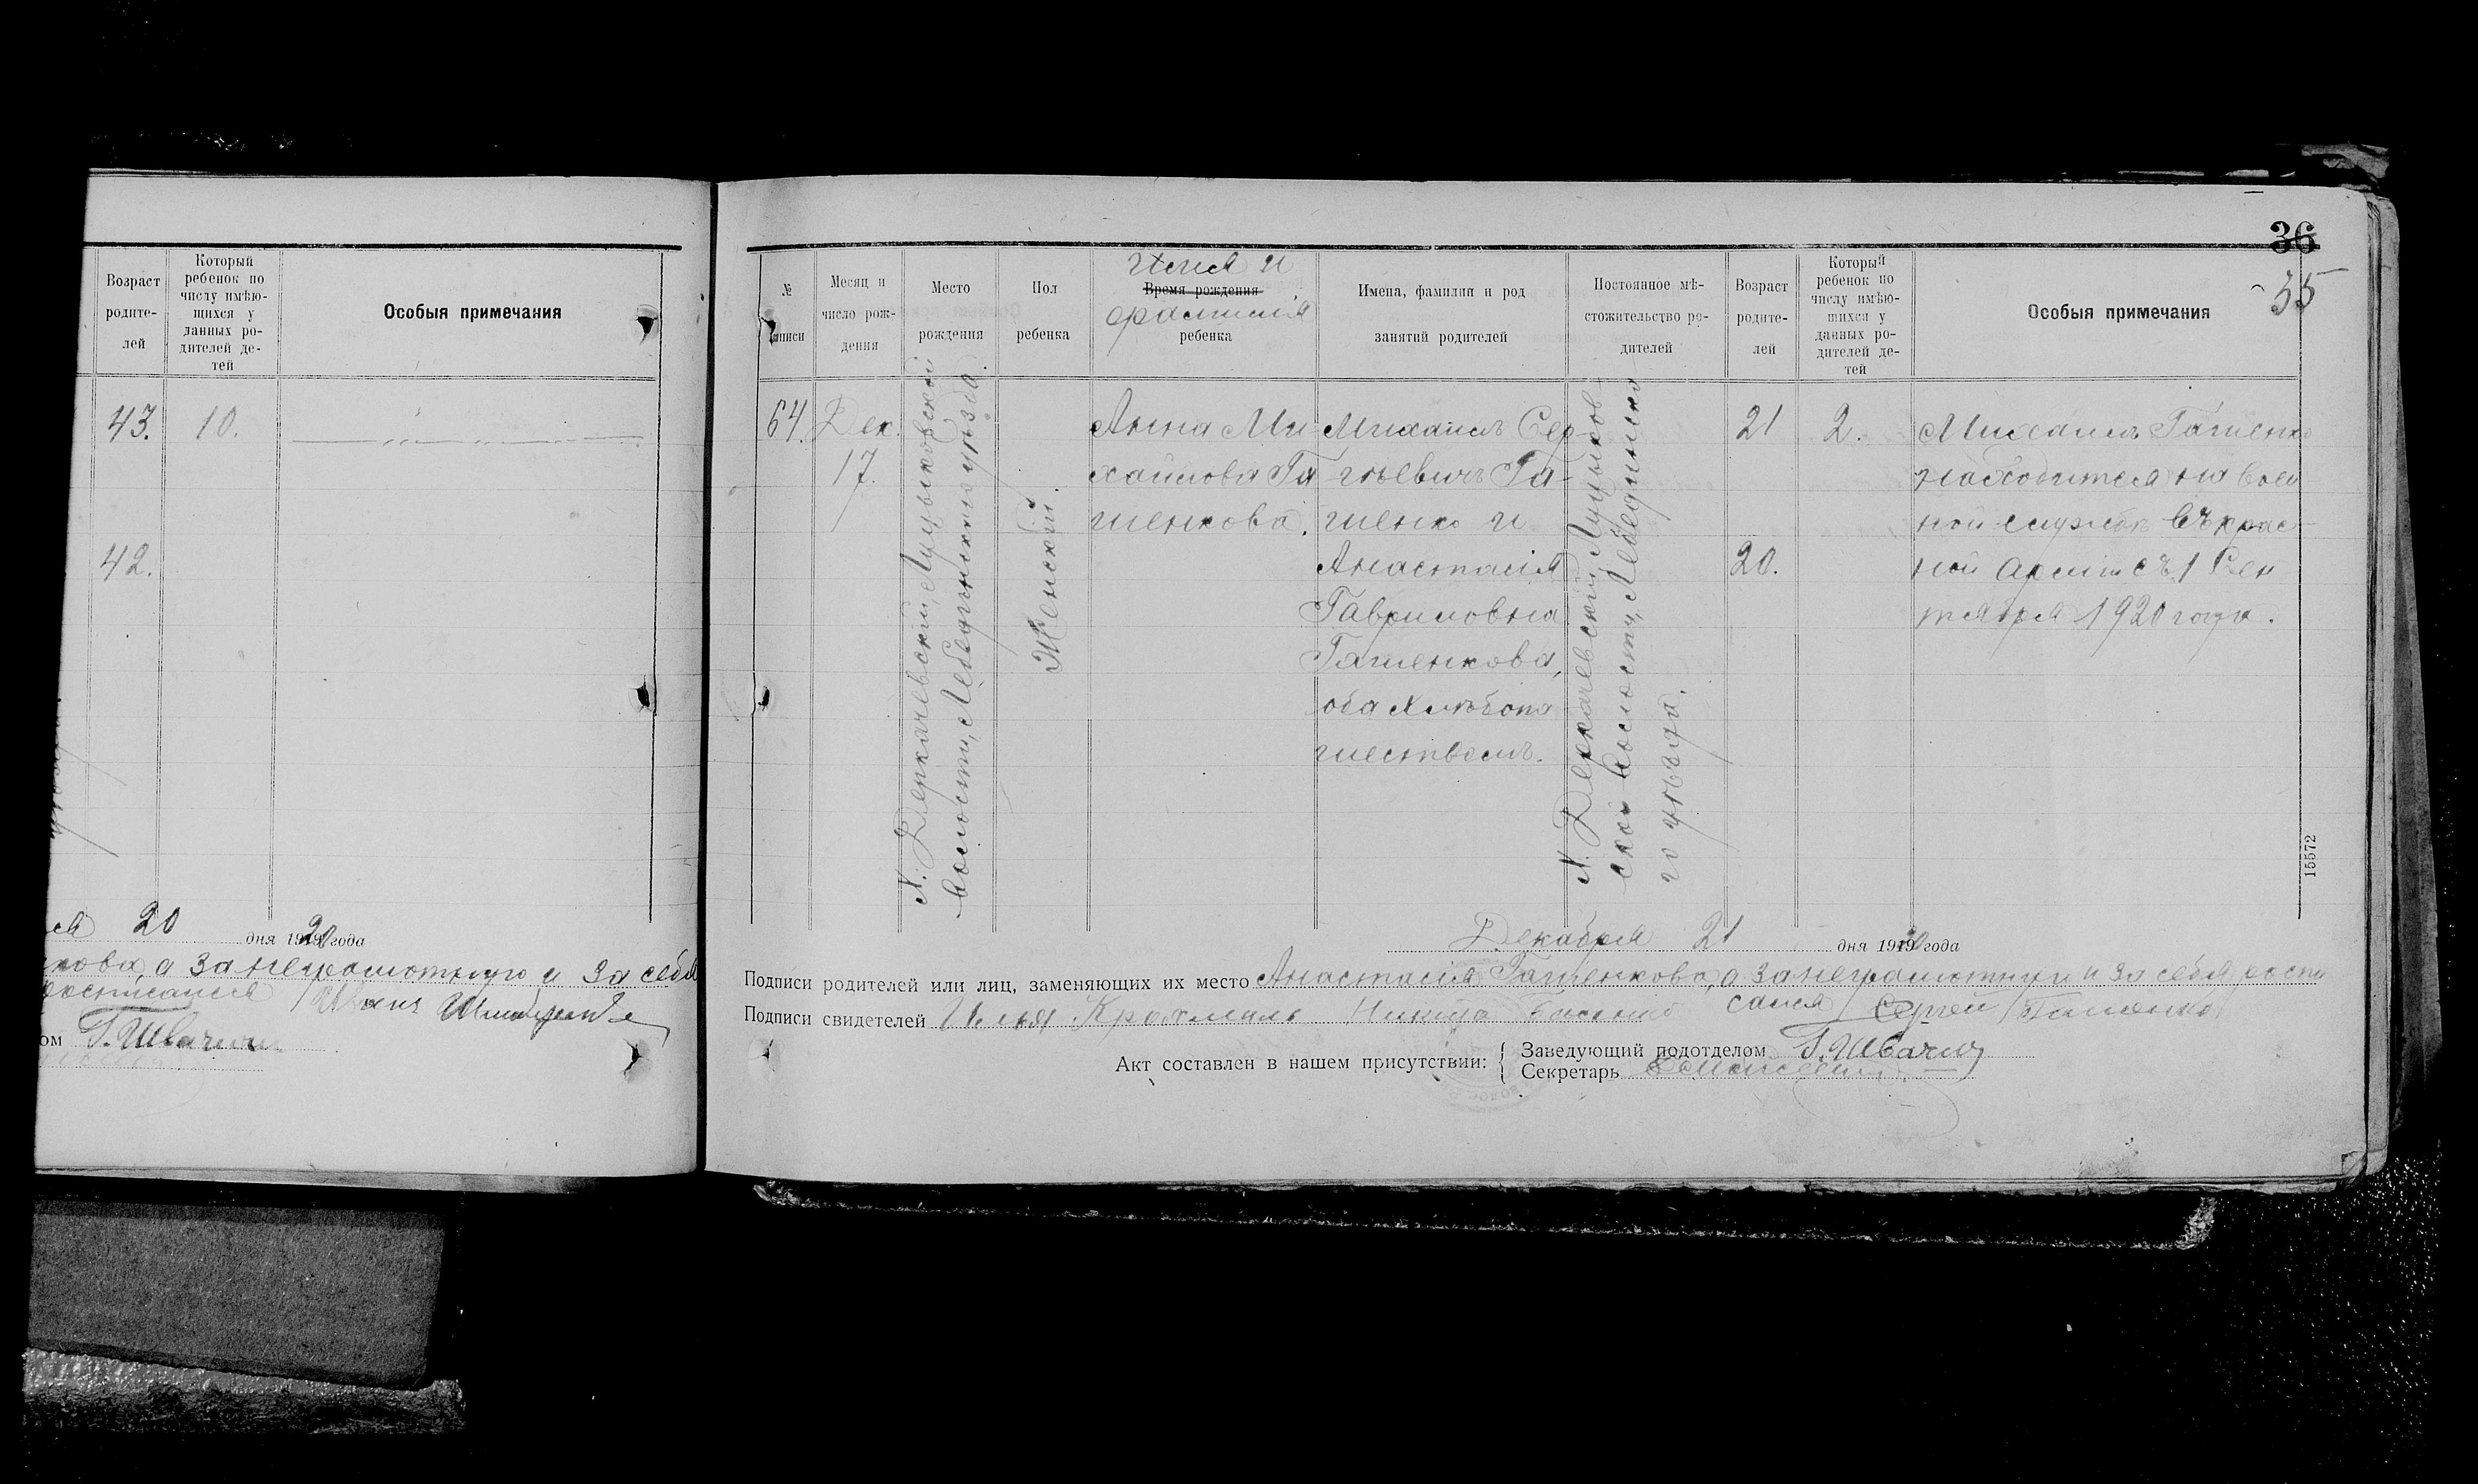 36
35
Возраст
родите-
лей
Который
ребенок по
числу имѣю-
щихся у
данных ро-
дителей де-
тей
Особыя примечания
43.
10.
42.
20 дня 1920 года
а за неграмотную и за себя
росписался Иван
Г. Швачич
№
записи
Месяц и
число рож-
дения
Место
рождения
Пол
ребенка
Имя и
Время рождения
фамилія
ребенка
Имена, фамилии и род
занятий родителей
Постоянное мѣ-
стожительство ро-
дителей
Возраст
родите-
лей
Который
ребенок по
числу имѣю-
щихся у
данных ро-
дителей де-
тей
Особыя примечания
64.
Дек.
17.
Х. Деркачевский, Луцыковской
волости, Лебединского уѣзда.
Женский.
Анна Ми
хайлова Га
шенкова.
Михаилъ Сер-
гѣевичъ Га-
шенко и
Анастасія
Гавриловна
Гашенкова,
оба хлѣбопа
шествомъ.
Х. Деркачевский, Луцыков-
ской волости, Лебединска
го уѣзда.
21
20.
2.
Михаилъ Гашенко
находится на воен
ной службѣ въ крас-
ной арміи съ 1 Сен
тября 1920 года.
15572
Декабря 21 дня 1920 года
Подписи родителей или лиц, заменяющих их место Анастасія Гашенкова, а за неграмотную и за себя роспи
сался Сергей Гашенко
Подписи свидетелей Илья Крохмаль Никита
Акт составлен в нашем присутствии:
Заведующий подотделом Г. Швачич
Секретарь